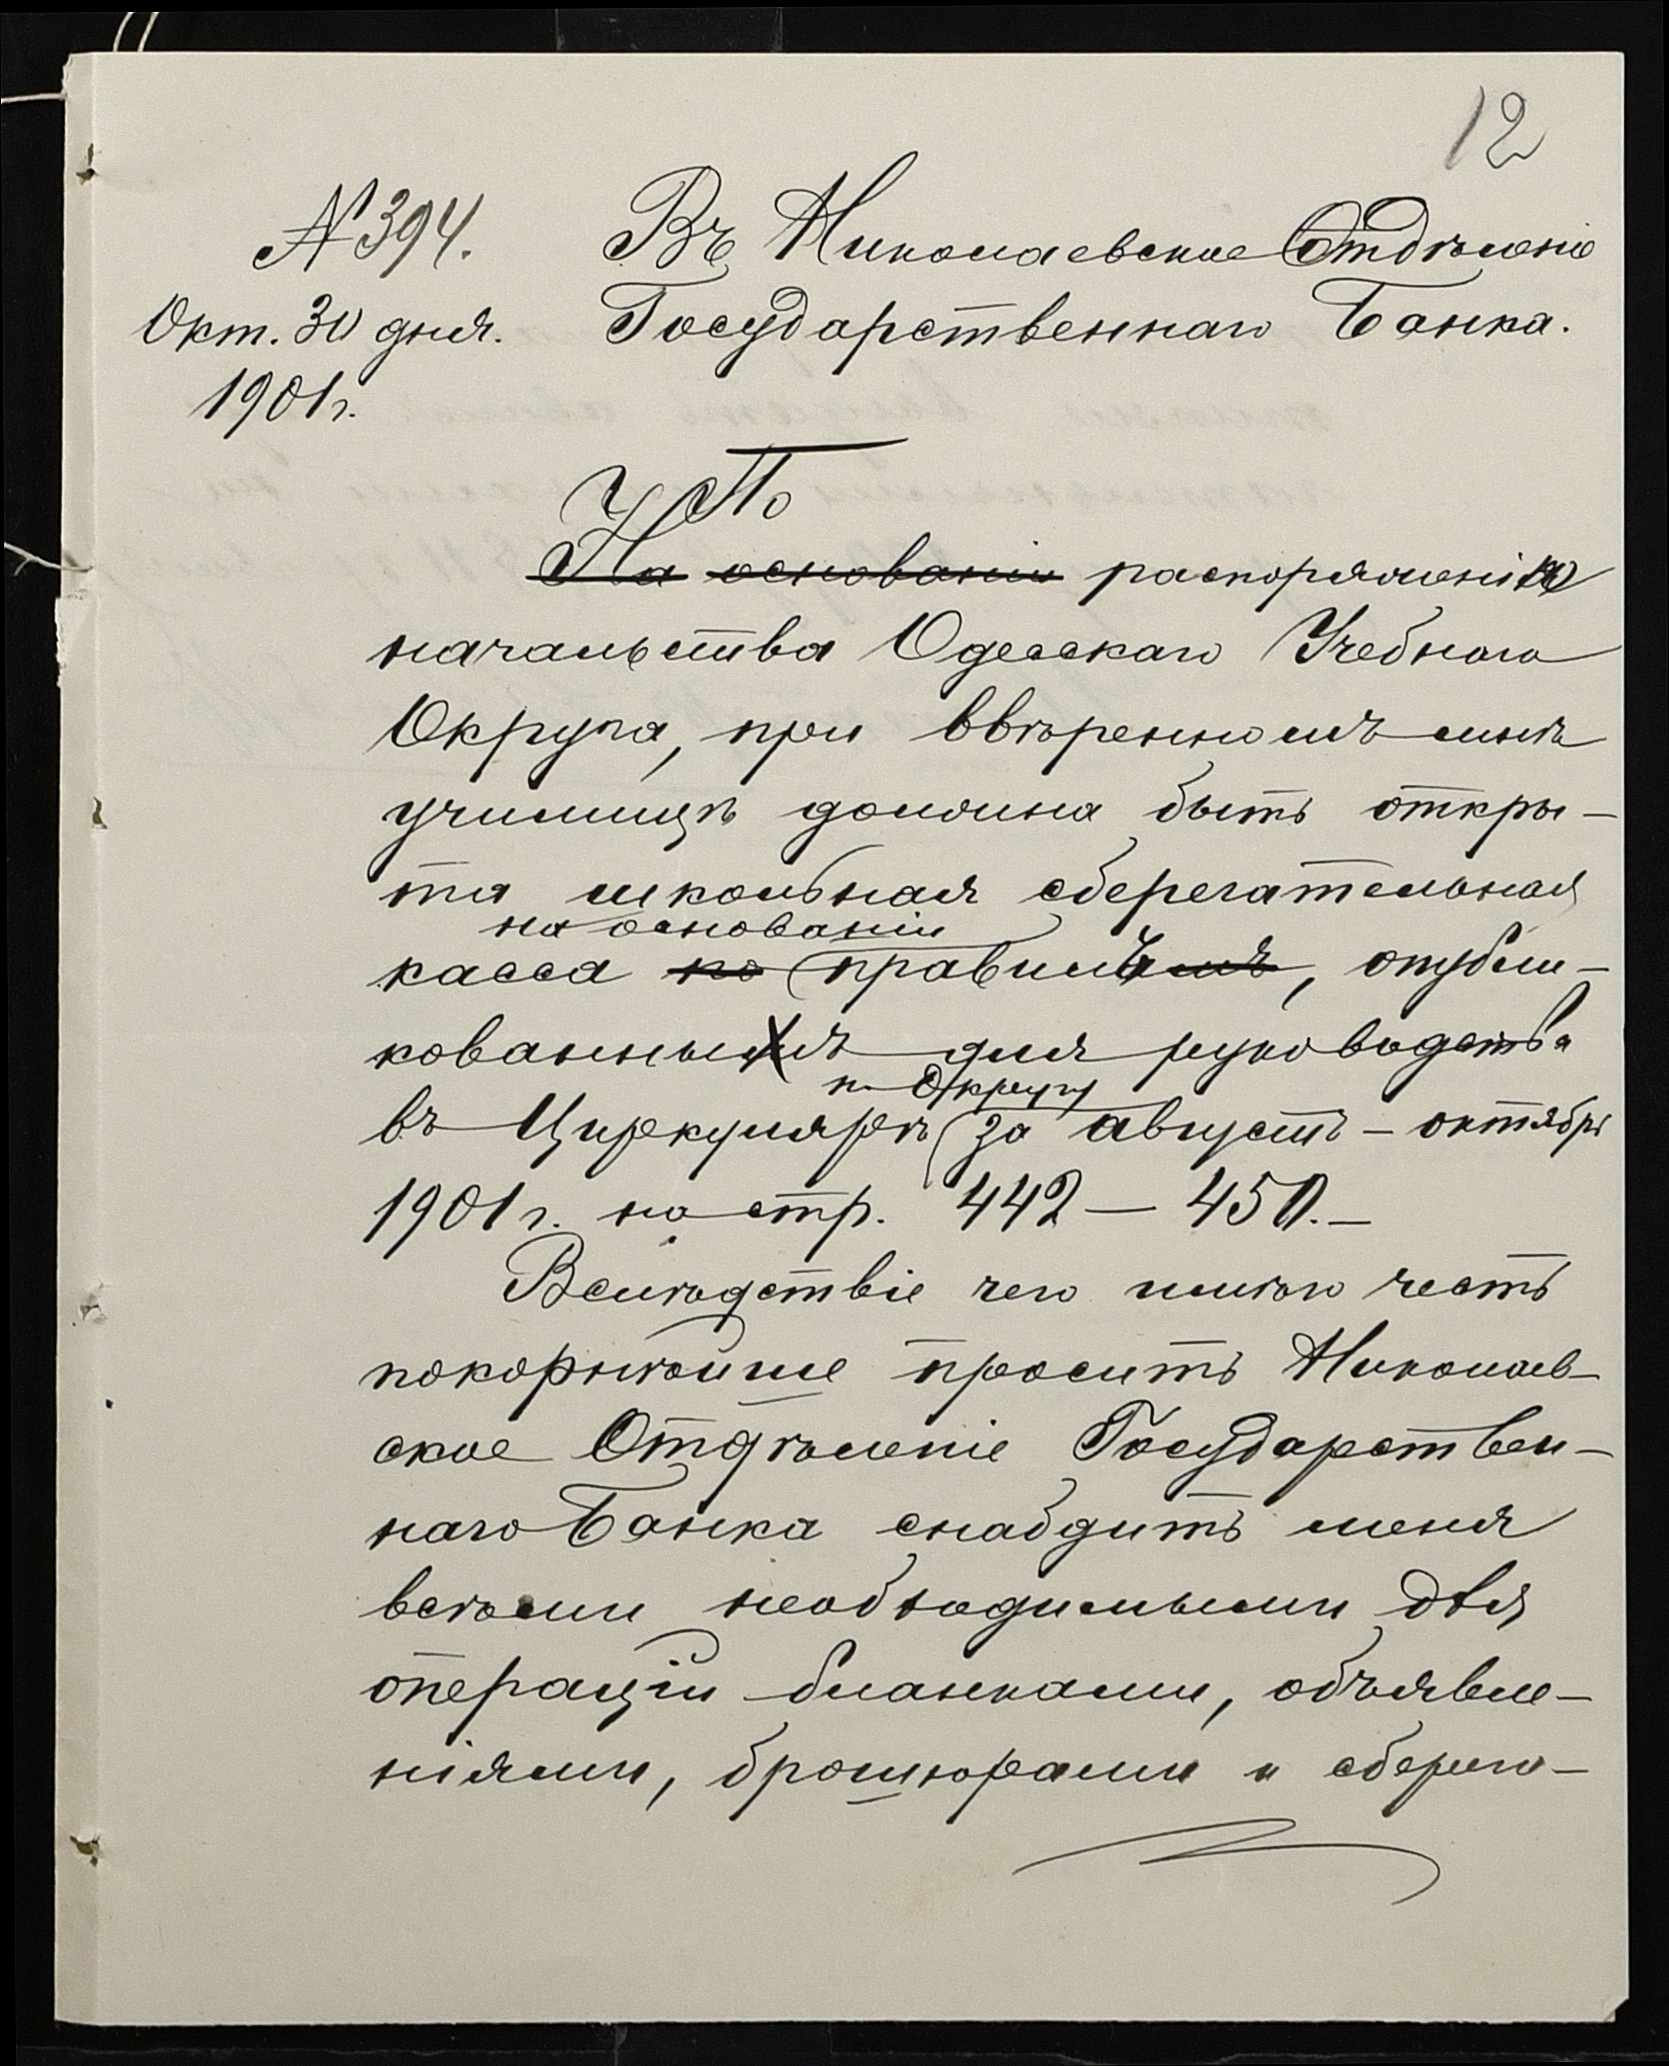 12
№ 394.
Окт. 30 дня.
1901 г.
Въ Николаевское Отдѣленіе
Государственнаго Банка.
По
На основаніи распоряженію
начальства Одесскаго Учебнаго
Округа, при ввѣренномъ мнѣ
училищѣ должна быть откры-
та школьная сберегательная
на основаніи
касса по правилъ, опубли-
кованныхъ для руководства
по Округу
въ Циркулярѣ за августъ - октябрь
1901 г. на стр. 442 - 450. -
Вслѣдствіе чего имѣю честь
покорнѣйше просить Николаев-
ское Отдѣленіе Государствен-
наго Банка снабдить меня
всѣми необходимыми для
операціи бланками, объявле-
ніями, брошюрами и сберега-